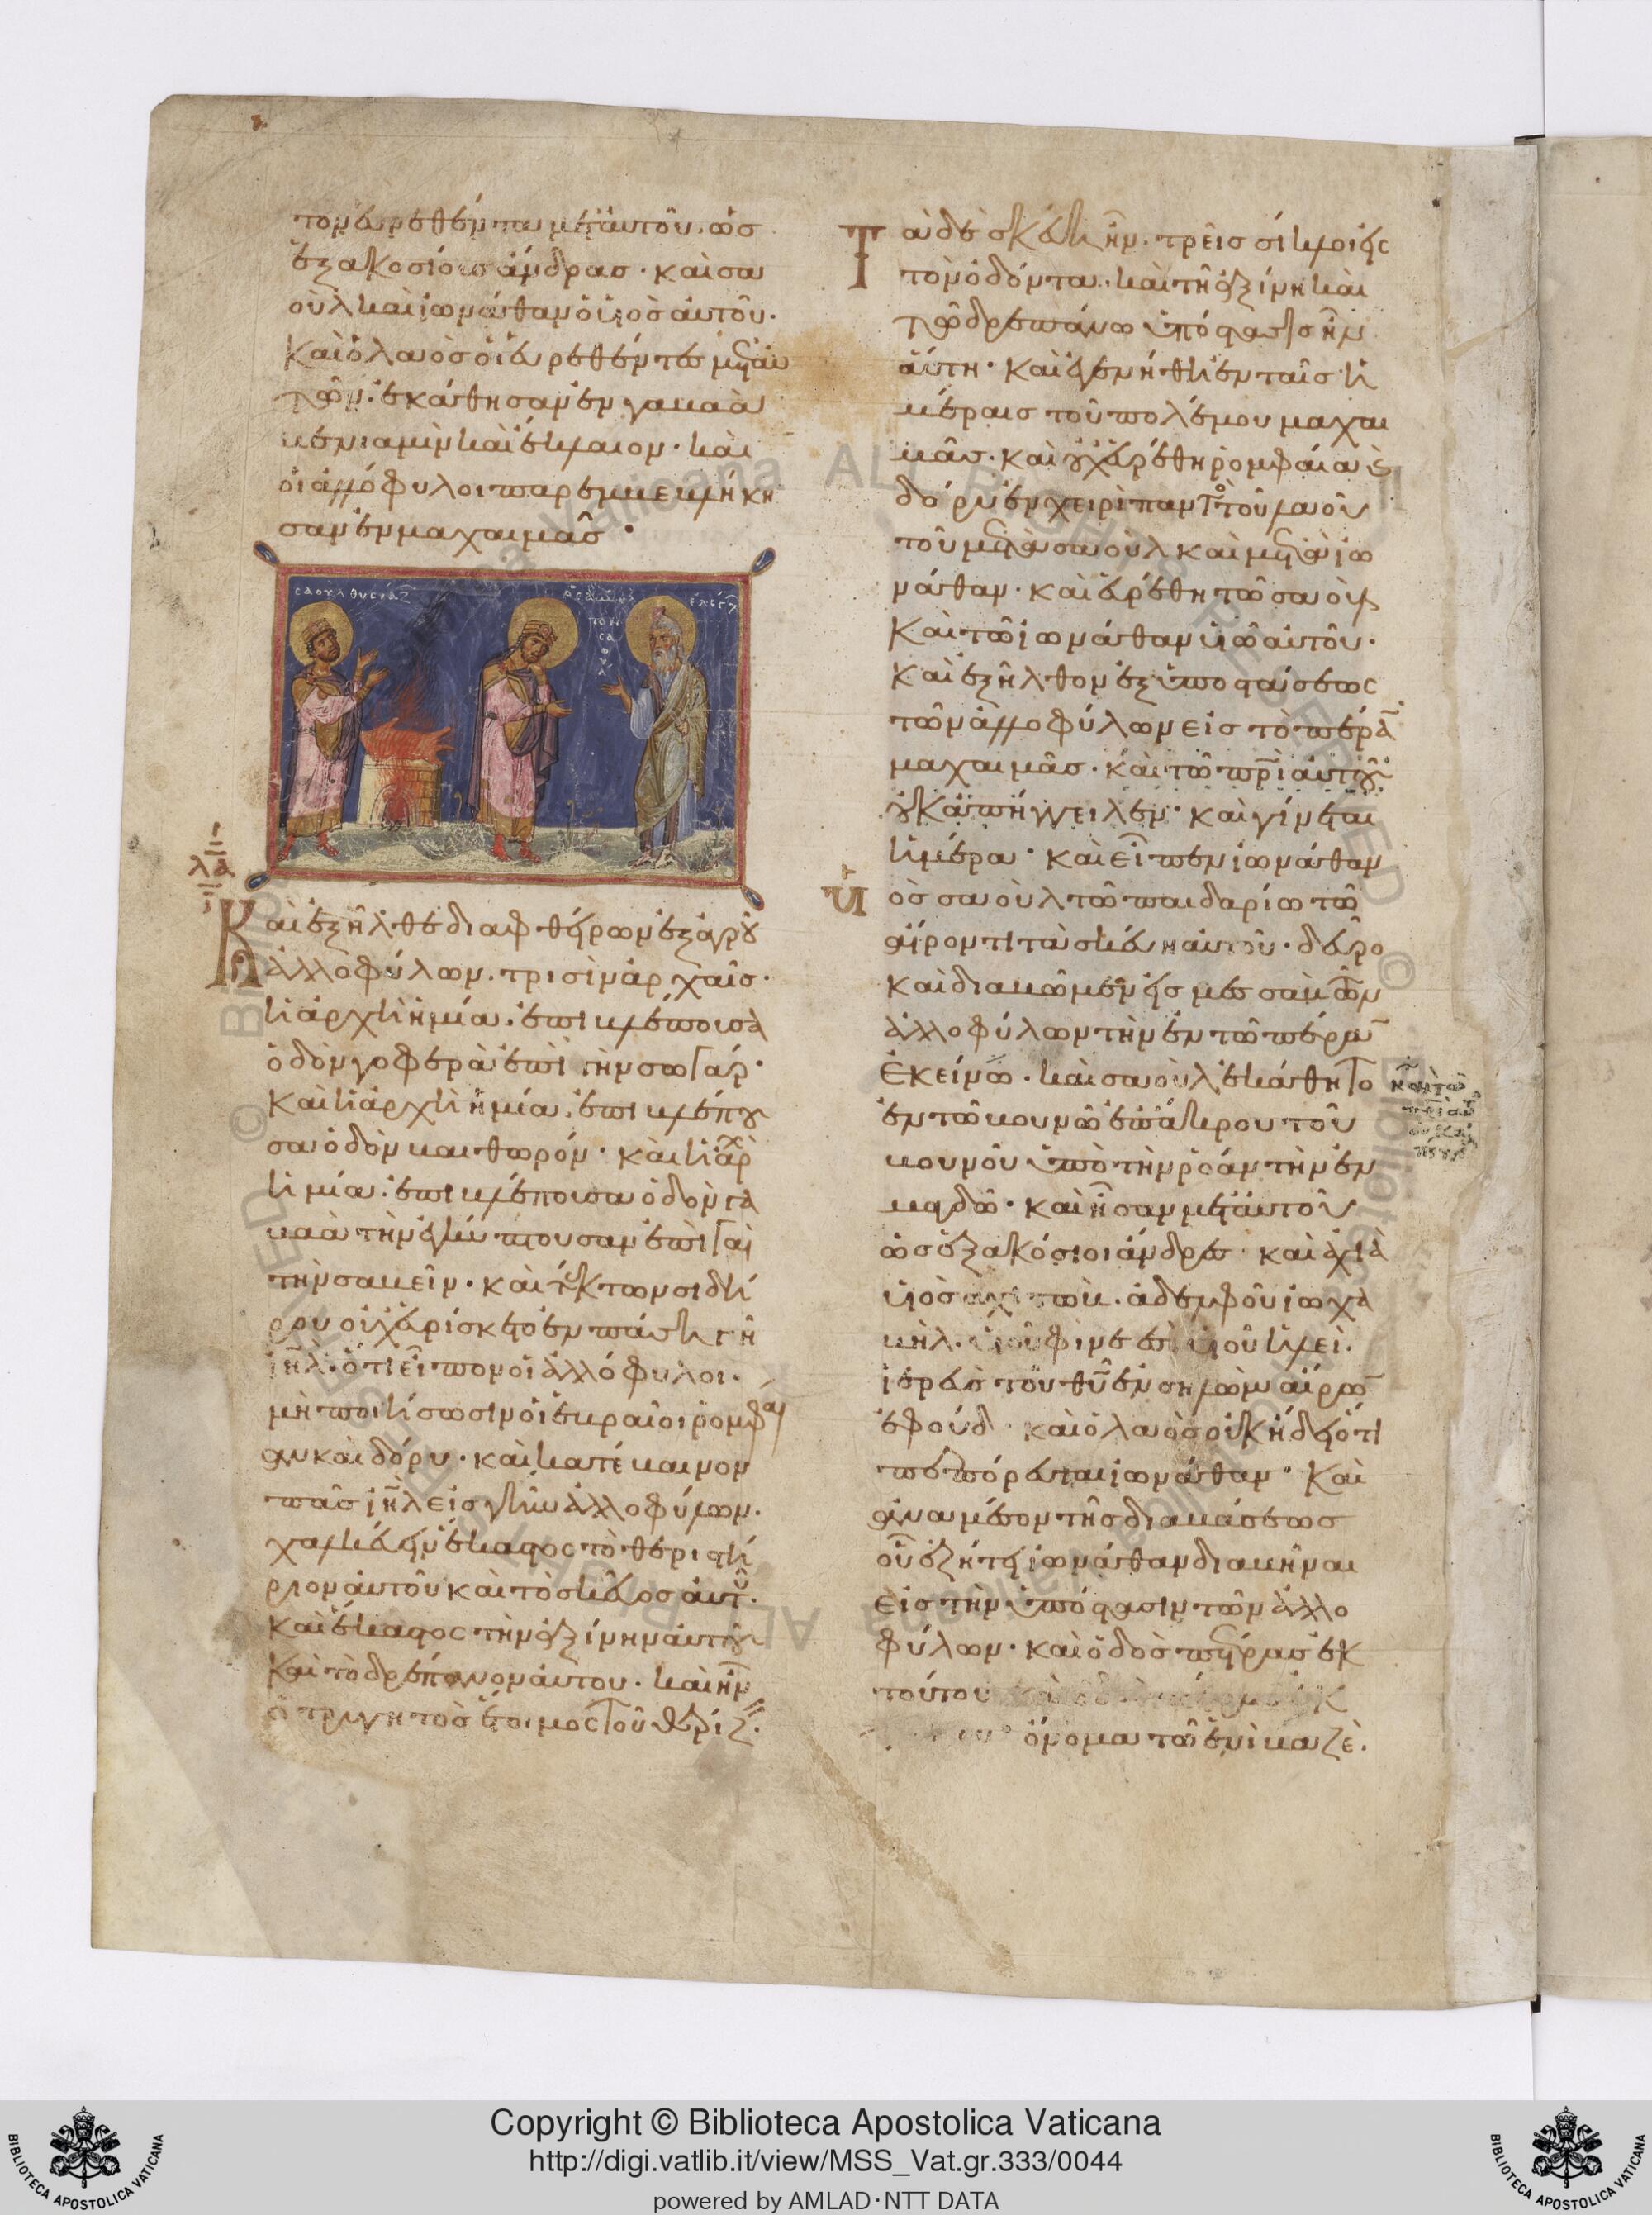 τὸν εὑρεθέντα μετ' αὐτοῦ· ὡς
ἑξακοσίους ἄνδρας· καὶ σα
οὺλ καὶ ἰωνάθαν ὁ υἱὸς αὐτοῦ·
καὶ ὁ λαὸς οἱ εὑρεθέντες μετ' αὐ
τῶν· ἐκάθησαν ἐν γαβαὰ
βενιαμὶν καὶ ἔκλαιον· καὶ
οἱ ἀλλόφυλοι παρεμβεβλήκη
σαν ἐν μαχαιμᾶς·
σαοὺλ θυσιάζ
σαοὺλ
ἐλέγχ
λα
Καὶ ἐξῆλθε διαφθείρων ἐξ ἀγροῦ
ἀλλοφύλων. τρισὶν ἀρχαῖς·
ἡ ἀρχὴ ἡ μία. ἐπιβλέπουσα
ὁδὸν γοφερὰ ἐπὶ τὴν σωγάρ·
καὶ ἡ ἀρχὴ ἡ μία. ἐπιβλέπου
σα ὁδὸν βαιθωρόν· καὶ ἡ ἀρχ
ἡ μία. ἐπιβλέπουσα ὁδὸν γα
βαὰ τὴν εἰσκύπτουσαν ἐπὶ γαὶ
τὴν σαβεῖν· καὶ τέκτων σιδή
ρου οὐχ εὑρίσκετο ἐν πάσῃ γῆ
ἰηλ. ὅτι εἶπον οἱ ἀλλόφυλοι.
μὴ ποιήσωσιν οἱ ἑβραῖοι ῥομφαί
αν καὶ δόρυ· καὶ κατέβαινον
πᾶς ἰηλ εἰς γῆν ἀλλοφύλων.
χαλκεύειν ἕκαστος τὸ θεριστή
ριον αὐτοῦ καὶ τὸ σκεῦος αὐτοῦ.
καὶ ἕκαστος τὴν ἀξίνην αὐτοῦ
καὶ τὸ δρέπανον αὐτοῦ. καὶ ἦν
ὁ τρυγητὸς ἕτοιμος τοῦ θερίζ.
Τὰ δὲ σκεύη ἦν. τρεῖς σίκλοι εἰς
τὸν ὀδόντα. καὶ τῆ ἀξίνη καὶ
τῶ δρεπάνω ὑπόστασις ἦν
αὕτη· καὶ ἐγενήθη ἐν ταῖς ἡ
μέραις τοῦ πολέμου μαχαι
μᾶς. καὶ οὐχ εὑρέθη ῥομφαία καὶ
δόρυ ἐν χειρὶ παντὸς τοῦ λαοῦ
τοῦ μετὰ σαοὺλ καὶ μετὰ ἰω
νάθαν· καὶ εὑρέθη τῶ σαοὺλ
καὶ τῶ ἰωνάθαν υἱῶ αὐτοῦ.
καὶ ἐξῆλθον ἐξ ὑποστάσεως
τῶν ἀλλοφύλων εἰς τὸ πέρα
μαχαιμᾶς. καὶ τῶ πρὶ αὐτοῦ
οὐκ ἀπήγγειλεν· καὶ γίνεται
ἡμέρα· καὶ εἶπεν ἰωνάθαν
υἱὸς σαοὺλ τῶ παιδαρίω τῶ
αἴροντι τὰ σκεύη αὐτοῦ· δεῦρο
καὶ διαβῶμεν εἰς μεσσὰβ τῶν
ἀλλοφύλων τὴν ἐν τῶ πέραν
ἐκείνω. καὶ σαοὺλ ἐκάθητο
ἐν τῶ βουνῶ ἐπ' ἄκρου τοῦ
βουνοῦ ὑπὸ τὴν ῥοὰν τὴν ἐν
μαδῶ· καὶ ἦσαν μετ' αὐτοῦ
ὡς ἑξακόσιοι ἄνδρες· καὶ ἀχιὰ
υἱὸς ἀχιτὼβ. ἀδελφοῦ ἰωχα
βὴλ. υἱοῦ φινεὲς υἱοῦ ἡλεὶ.
ἱερεὺς τοῦ θυ ἐν σηλὼμ αἴρων
ἐφούδ· καὶ ὁ λαὸς οὐκ ἤδει ὅτι
πεπόρευται ἰωνάθαν· καὶ
ἀνὰ μέσον τῆς διαβάσεως
οὗ ἐζήτει ἰωνάθαν διαβῆναι
εἰς τὴν ὑπόστασιν τῶν ἀλλο
φύλων· καὶ ὀδοὺς πέτρας ἐκ
τούτου
ὄνομα τῶ ἑνὶ βαζὲ.
Copyright © Biblioteca Apostolica Vaticana
http://digi.vatlib.it/view/MSS_Vat.gr.333/0044
powered by AMLAD·NTT DATA
BIBLIOTECA APOSTOLICA VATICANA
BIBLIOTECA APOSTOLICA VATICANA